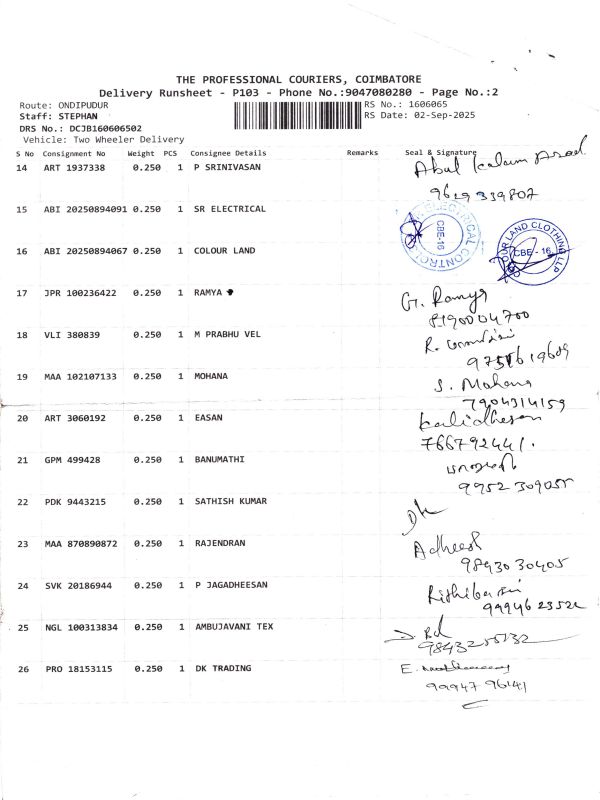 THE PROFESSIONAL COURIERS, COIMBATORE
Delivery Runsheet - P103 - Phone No.:9047080280 - Page No.:2
Route: ONDIPUDUR RS No.: 1606065
Staff: STEPHAN RS Date: 02-Sep-2025
DRS No.: DCJB160606502
Vehicle: Two Wheeler Delivery
S No Consignment No Weight PCS Consignee Details Remarks Seal & Signature
14 ART 1937338 0.250 1 P SRINIVASAN Abul Kalam Azad
9629339807
15 ABI 20250894091 0.250 1 SR ELECTRICAL
ELECTRICAL CONTRACTOR CBE-16
16 ABI 20250894067 0.250 1 COLOUR LAND
COLOUR LAND CLOTHING LLP CBE - 16
17 JPR 100236422 0.250 1 RAMYA G. Ramya
8190004700
18 VLI 380839 0.250 1 M PRABHU VEL R.
19 MAA 102107133 0.250 1 MOHANA S. Mohana
7904314159
20 ART 3060192 0.250 1 EASAN Kalidhasan
766792441.
21 GPM 499428 0.250 1 BANUMATHI
9952309055
22 PDK 9443215 0.250 1 SATHISH KUMAR
23 MAA 870890872 0.250 1 RAJENDRAN Adheesh
9893030405
24 SVK 20186944 0.250 1 P JAGADHEESAN
9994623522
25 NGL 100313834 0.250 1 AMBUJAVANI TEX
9843255132
26 PRO 18153115 0.250 1 DK TRADING E.
9994796141